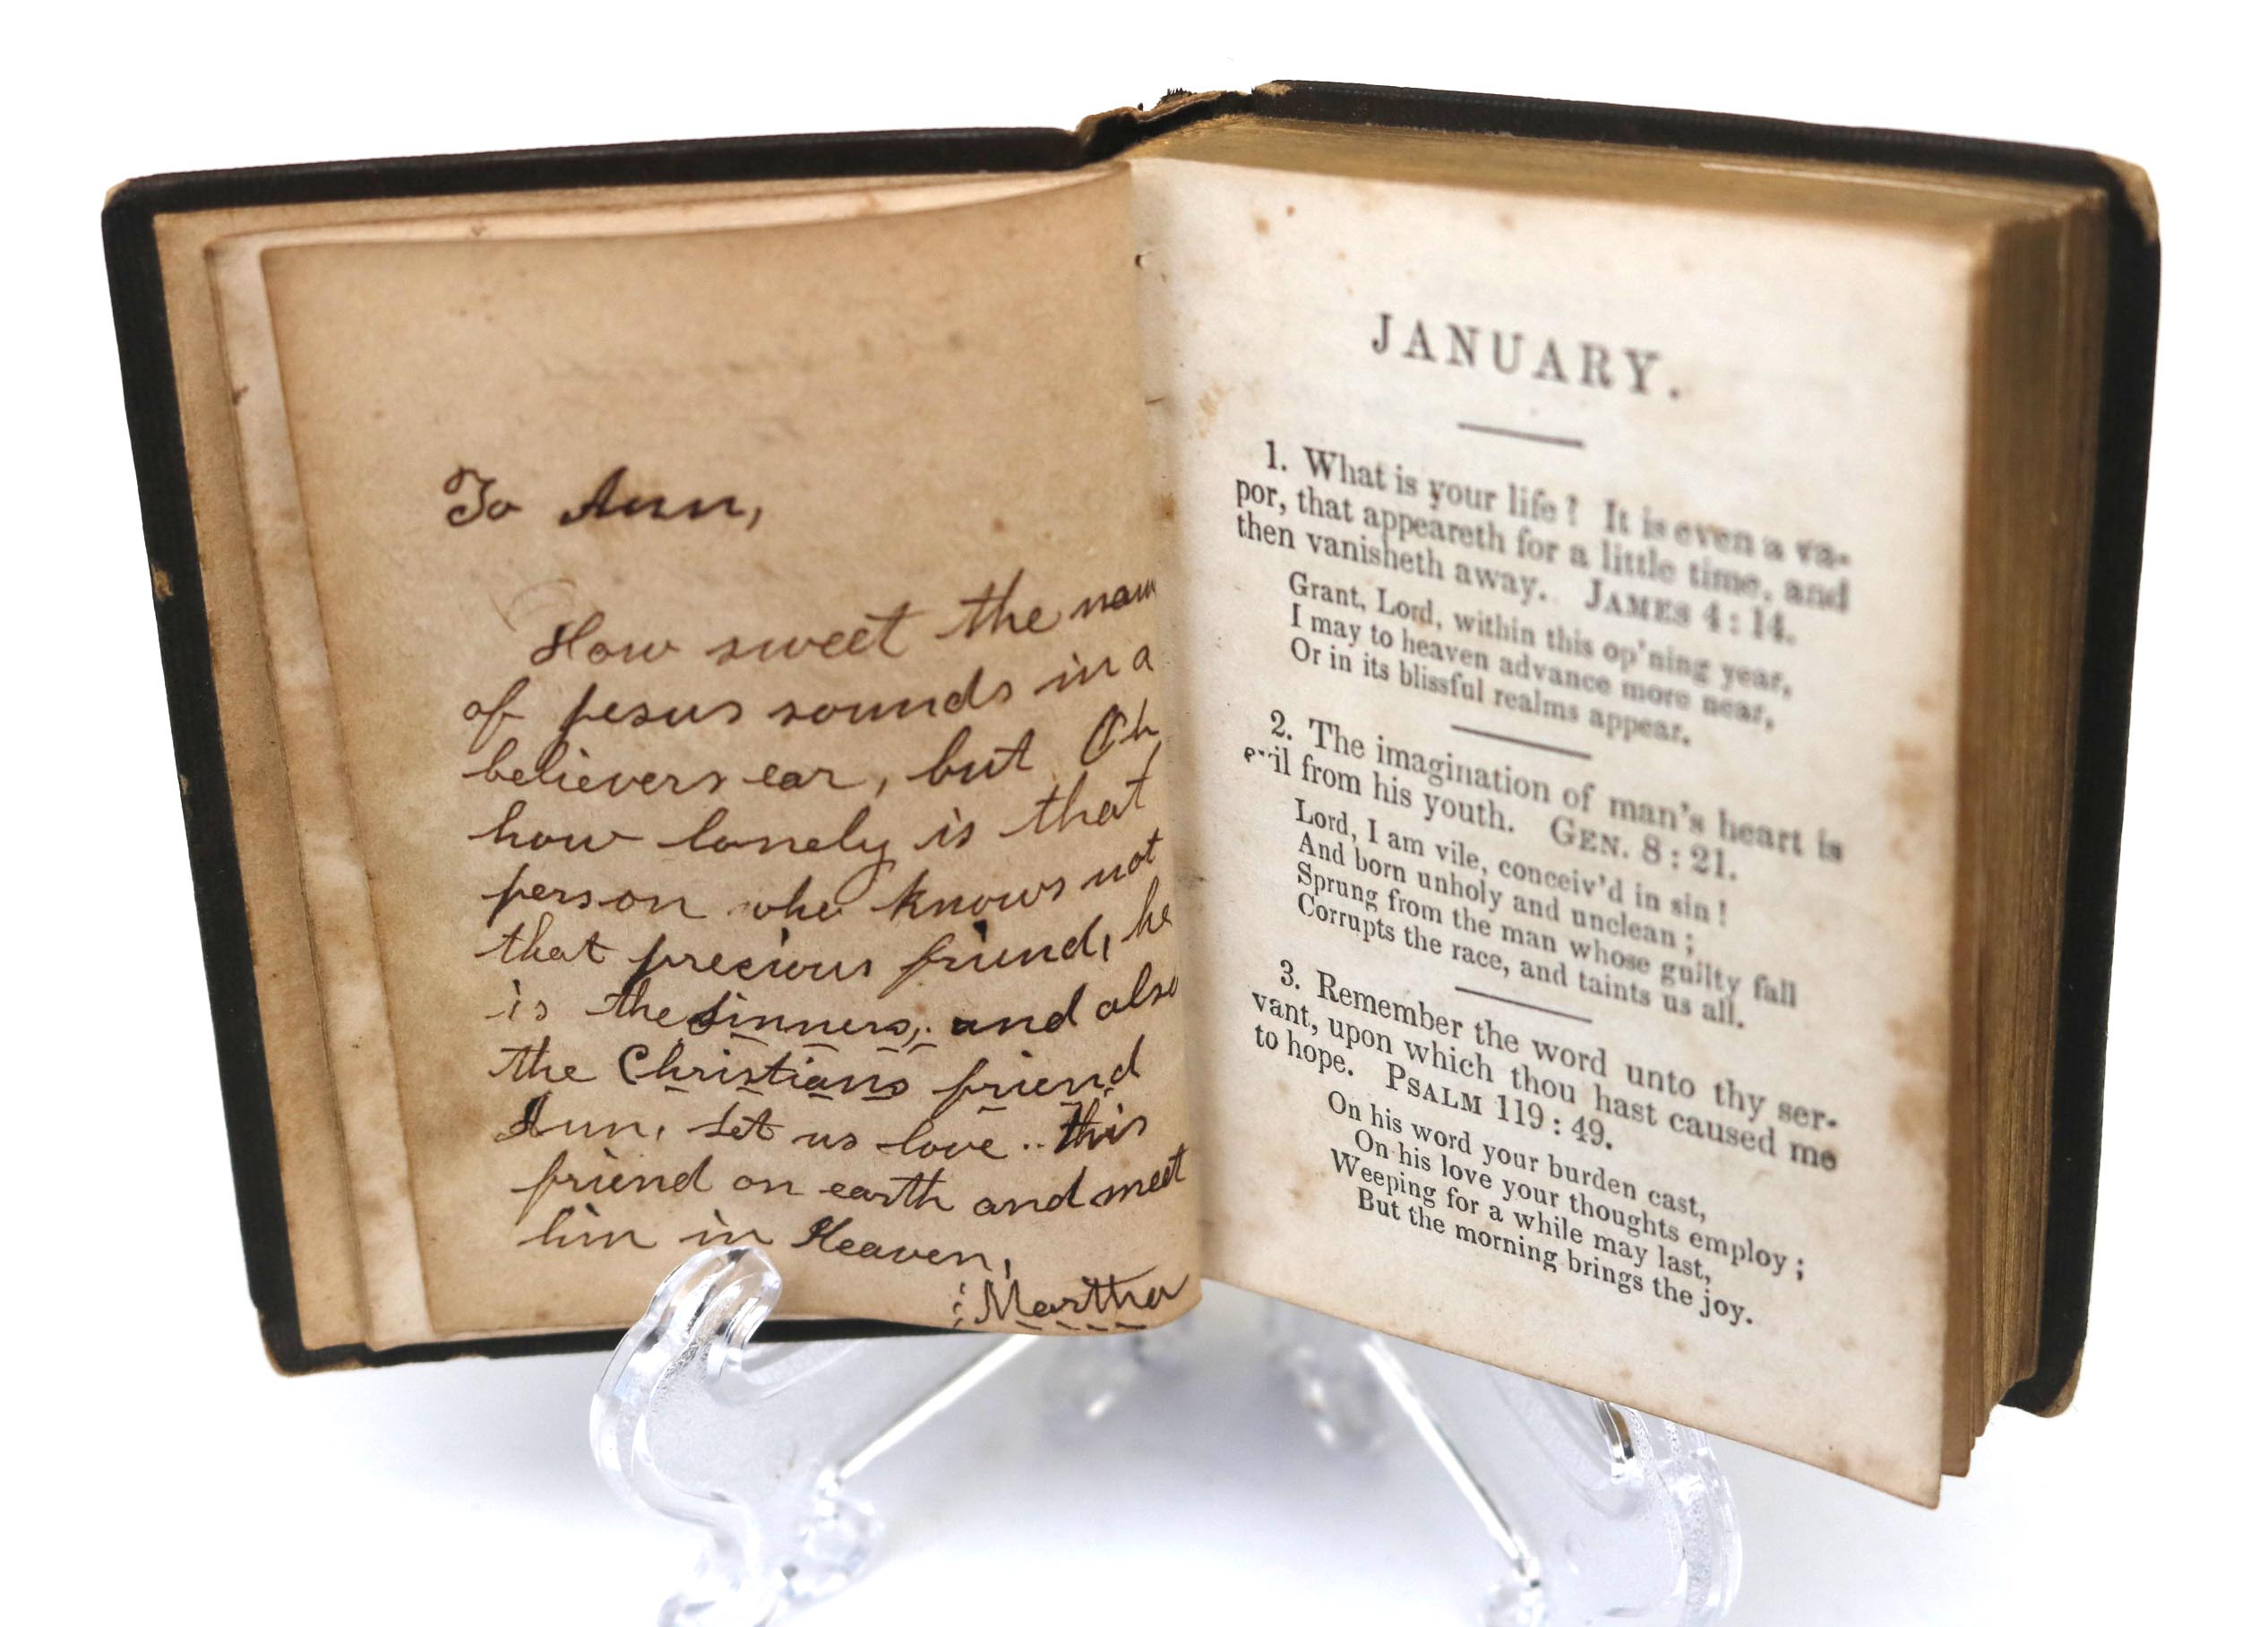 To Ann,
How sweet the nam
of Jesus sounds in a
believers ear, but Oh
how lonely is that
person who knows not
that precious friend, he
is the sinners, and also
the Christians friend
Ann, Let us love this
friend on earth and meet
him in Heaven,
Martha
JANUARY.
1. What is your life? It is even a va-
por, that appeareth for a little time, and
then vanisheth away. JAMES 4 : 14.
Grant, Lord, within this op'ning year,
I may to heaven advance more near,
Or in its blissful realms appear.
2. The imagination of man's heart is
evil from his youth. GEN. 8 : 21.
Lord, I am vile, conceiv'd in sin!
And born unholy and unclean;
Sprung from the man whose guilty fall
Corrupts the race, and taints us all.
3. Remember the word unto thy ser-
vant, upon which thou hast caused me
to hope. PSALM 119 : 49.
On his word your burden cast,
On his love your thoughts employ;
Weeping for a while may last,
But the morning brings the joy.